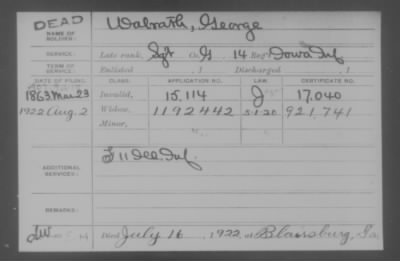 DEAD
NAME OF SOLDIER:
Walrath, George
SERVICE:
Late rank, Sgt Co. G, 14 Reg't Iowa Inf
TERM OF SERVICE:
Enlisted , 1 Discharged , 1
DATE OF FILING. CLASS. APPLICATION NO. LAW. CERTIFICATE NO.
1863 Mar 23 Invalid, 15.114 17.040
1922 Aug. 2 Widow, 1192442 5-1-20 921,741
Minor,
ADDITIONAL SERVICES:
Inf.
REMARKS:
Died July 16, 1922, at Blairsburg, Ia